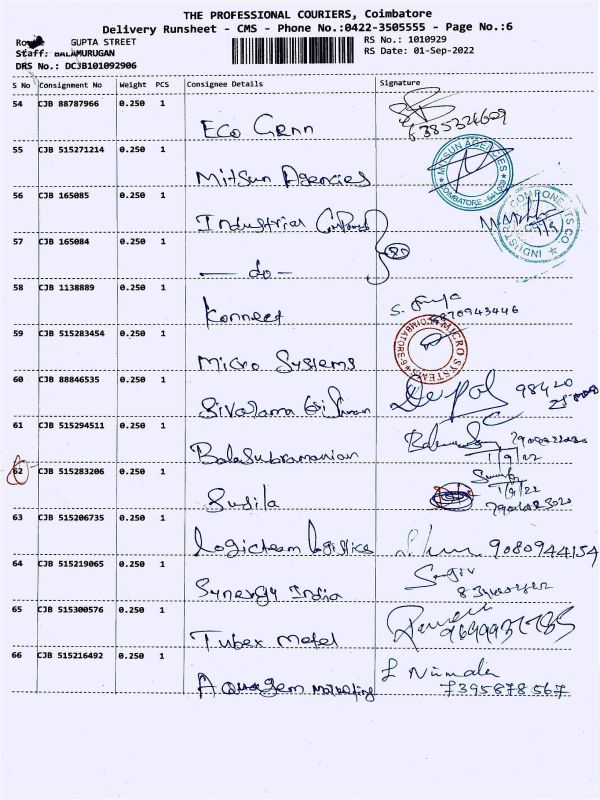 THE PROFESSIONAL COURIERS, Coimbatore
Delivery Runsheet - CMS - Phone No.:0422-3505555 - Page No.:6
GUPTA STREET
RS No.: 1010929
Staff: BALAMURUGAN
RS Date: 01-Sep-2022
DRS No.: DCJB101092906
S No Consignment No Weight PCS Consignee Details Signature
54 CJB 88787966 0.250 1
Eco Grnn
6385324609
55 CJB 515271214 0.250 1
MITSUN AGENCIES
COIMBATORE
Mitsun Agencies
56 CJB 165085 0.250 1
Industrial
COMPONENTS CO
57 CJB 165084 0.250 1
— do —
58 CJB 1138889 0.250 1
Konnect
8870943446
59 CJB 515283454 0.250 1
MICRO SYSTEMS
COIMBATORE
Micro Systems
60 CJB 88846535 0.250 1
98420
61 CJB 515294511 0.250 1
Balasubramanian
1/9/22
62 CJB 515283206 0.250 1
Susila
1/9/22
63 CJB 515206735 0.250 1
Logicteam Logistics
9080944154
64 CJB 515219065 0.250 1
Synergy India
65 CJB 515300576 0.250 1
Tubex Metel
66 CJB 515216492 0.250 1
Aquagem marketing
7395878567